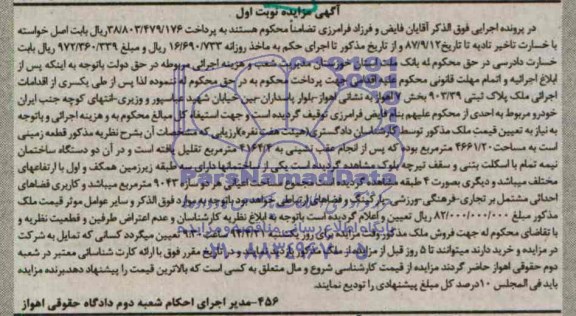 آگهی مزایده نوبت اول
در پرونده اجرایی فوق الذکر آقایان فایض و فرزاد فرامرزی تضامناً محکوم هستند به پرداخت ۳۸/۸۰۳/۴۷۹/۱۷۶ ریال بابت اصل خواسته
با خسارت تاخیر تادیه تا تاریخ ۸۷/۹/۱۲ و از تاریخ مذکور تا اجرای حکم به ماخذ روزانه ۱۶/۶۹۰/۷۳۳ ریال و مبلغ ۹۷۲/۳۶۰/۳۳۹ ریال بابت
خسارت دادرسی در حق محکوم له بانک خوزستان مدیریت شعب و هزینه اجرائی مربوطه در حق دولت باتوجه به اینکه پس از
ابلاغ اجرائیه و اتمام مهلت قانونی محکوم علیه اقدامی جهت پرداخت محکوم به در حق محکوم له ننموده لذا پس از طی یکسری از اقدامات
اجرائی ملک پلاک ثبتی ۹۰۳/۳۹ بخش ۷ اهواز به نشانی اهواز-بلوار پاسداران-بین خیابان شهید عباسپور و وزیری-انتهای کوچه جنب ایران
خودرو مربوط به احدی از محکوم علیهم بنام فایض فرامرزی توقیف گردیده است و جهت استیفاء کل مبالغ محکوم به و هزینه اجرائی و باتوجه
به نیاز به تعیین قیمت ملک مذکور توسط کارشناسان دادگستری (هیئت هفت نفره) ارزیابی که مشخصات آن بشرح نظریه مذکور قطعه زمینی
است به مساحت ۴۶۶۱/۲۰ مترمربع بوده که پس از انجام عقب نشینی به ۴۱۶۴/۲ مترمربع تقلیل یافته است و در آن دو دستگاه ساختمان
نیمه تمام با اسکلت بتنی و سقف تیرچه بلوک مشاهده گردیده است یکی از ساختمانها دارای سه طبقه زیرزمین همکف و اول با ارتفاعهای
مختلف میباشد و دیگری بصورت ۴ طبقه مشاهده گردیده است مجموع مساحت اعیانی هر دو سازه ۹۰۴۳ مترمربع میباشد و کاربری فضاهای
احداثی مشتمل بر تجاری-فرهنگی-ورزشی-پارکینگ و فضاهای ارتباطی خواهد بود باتوجه به موارد فوق الذکر و سایر عوامل موثر قیمت ملک
مذکور مبلغ ۸۲/۰۰۰/۰۰۰/۰۰۰ ریال تعیین و اعلام گردیده است باتوجه به ابلاغ نظریه کارشناسان و عدم اعتراض طرفین و قطعیت نظریه و
با تقاضای محکوم له جهت فروش ملک مذکور وقت مزایده برای روز یکشنبه تعیین میگردد کسانی که تمایل به شرکت
در مزایده و خرید دارند میتوانند تا ۵ روز قبل از مزایده از ملک مذکور و در تاریخ مقرر فوق با ارائه کارت شناسائی معتبر در شعبه
دوم حقوقی اهواز حاضر گردند مزایده از قیمت کارشناسی شروع و مال متعلق به کسی است که بالاترین قیمت را پیشنهاد دهد برنده مزایده
باید فی المجلس ۱۰درصد کل مبلغ پیشنهادی را تودیع نمایند.
۴۵۶-مدیر اجرای احکام شعبه دوم دادگاه حقوقی اهواز
ParsNamadData
پایگاه اطلاع رسانی مناقصه و مزایده
۰۲۱-۸۸۳۴۹۶۷۰-۵